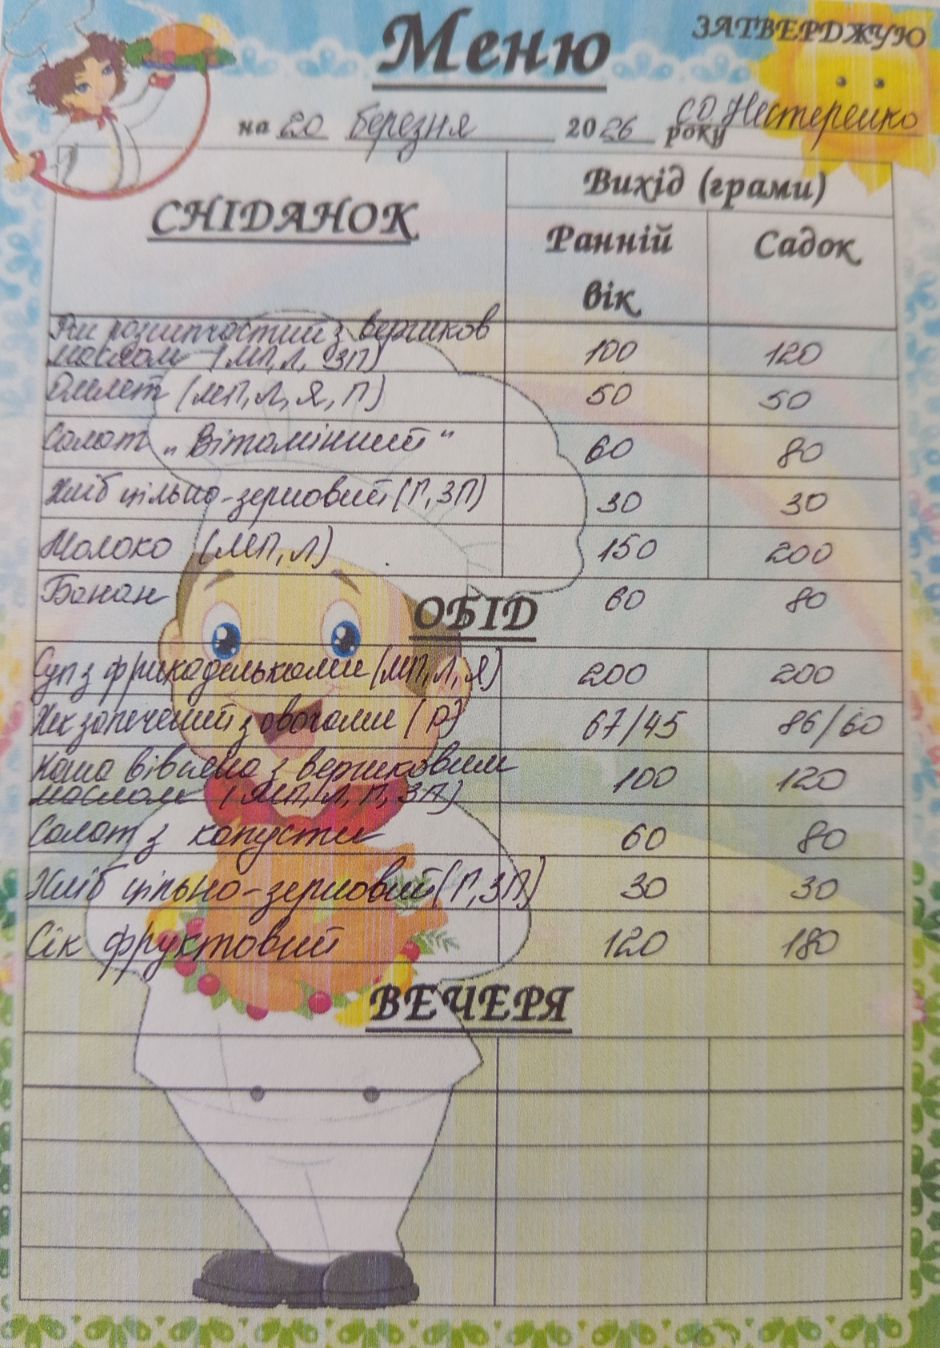 Меню
ЗАТВЕРДЖУЮ
на 20 березня 2026 року
СО Нестеренко
СНІДАНОК
Вихід (грами)
Ранній вік
Садок
Рис розсипчастий з вершков
маслом (МП, Л, ЗП) 100 120
Омлет (МП, Л, Я, П) 50 50
Салат „Вітамінний" 60 80
Хліб цільно-зерновий (П, ЗП) 30 30
Молоко (МП, Л) 150 200
Банан 60 80
ОБІД
Суп з фрикадельками (МП, Л, Я) 200 200
Хек запечений з овочами (Р) 67/45 86/60
Каша вівсяна з вершковим
маслом (МП, Л, П, ЗП) 100 120
Салат з капусти 60 80
Хліб цільно-зерновий (П, ЗП) 30 30
Сік фруктовий 120 180
ВЕЧЕРЯ